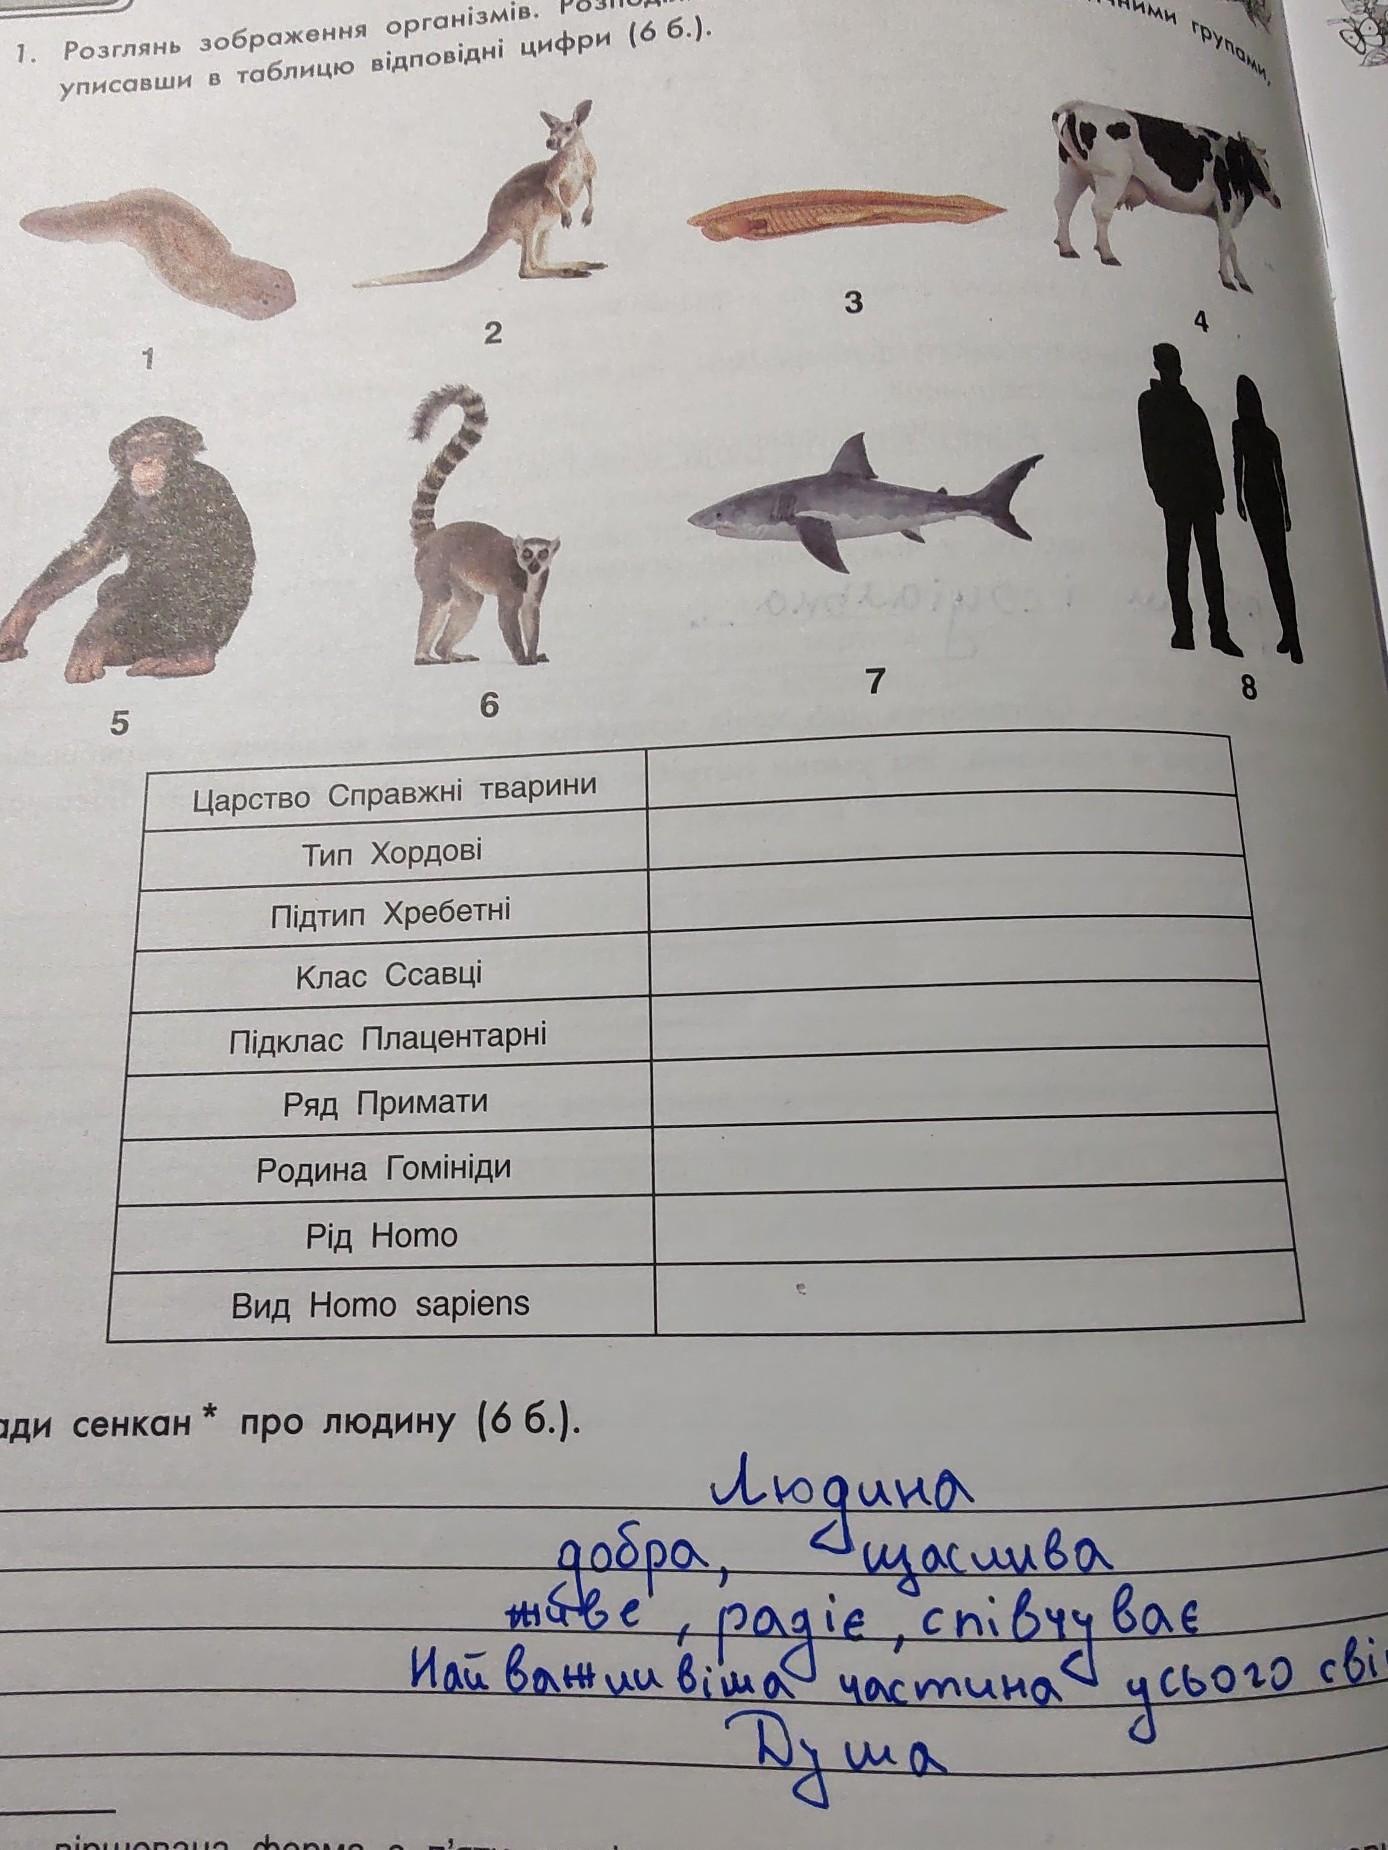 1. Розглянь зображення організмів.
ними групами,
уписавши в таблицю відповідні цифри (6 б.).
1
2
3
4
5
6
7
8
Царство Справжні тварини
Тип Хордові
Підтип Хребетні
Клас Ссавці
Підклас Плацентарні
Ряд Примати
Родина Гомініди
Рід Homo
Вид Homo sapiens
сенкан* про людину (6 б.).
Людина
добра, щаслива
радіє, співчуває
Найважливіша частина усього
Душа